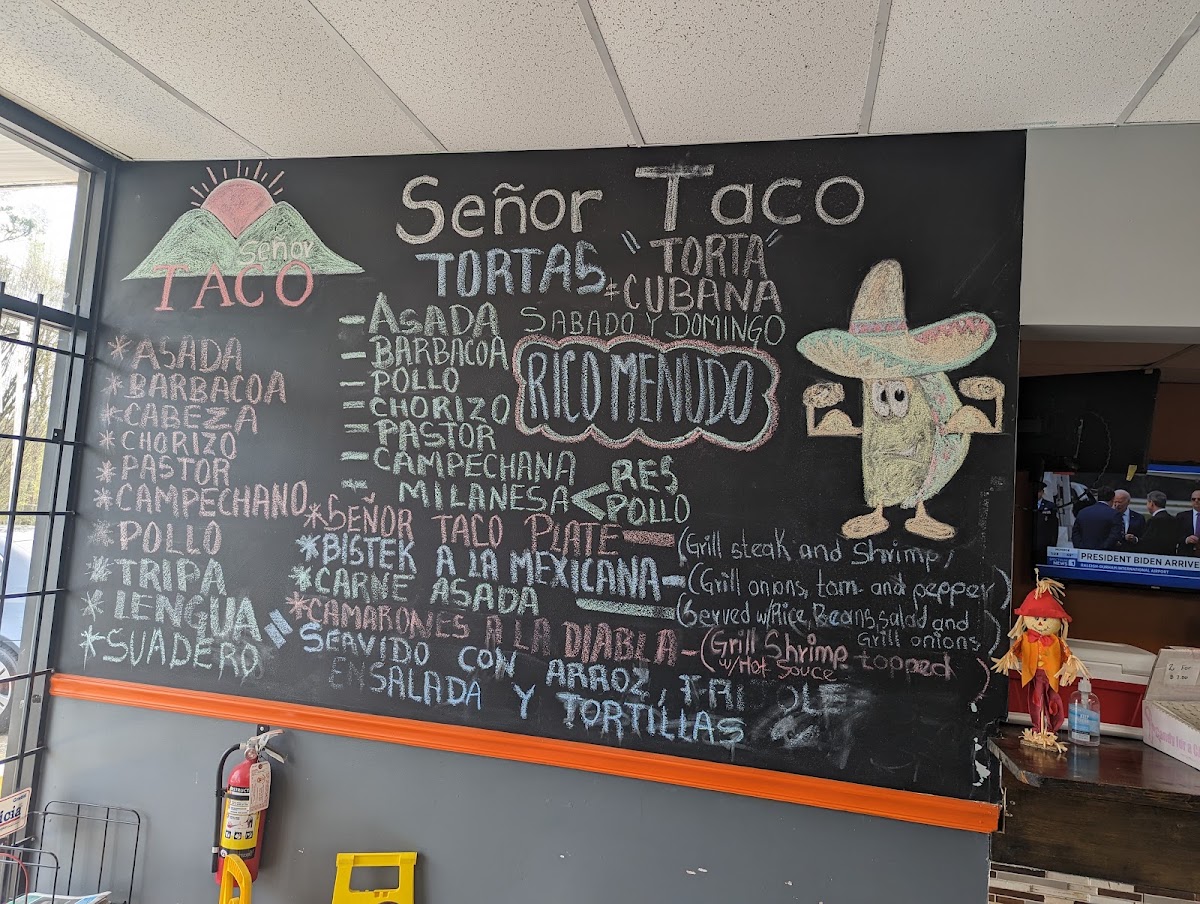 Señor
TACO
Señor Taco
TORTAS
"TORTA"
CUBANA
- ASADA
- BARBACOA
- POLLO
- CHORIZO
- PASTOR
- CAMPECHANA
- MILANESA < RES
POLLO
SABADO Y DOMINGO
RICO MENUDO
* ASADA
* BARBACOA
* CABEZA
* CHORIZO
* PASTOR
* CAMPECHANO
* POLLO
* TRIPA
* LENGUA
* SUADERO
* SEÑOR TACO PLATE - (Grill steak and shrimp,
* BISTEK A LA MEXICANA - (Grill onions, tom. and pepper)
* CARNE ASADA - (Served w/Rice, Beans, Salad and
Grill onions)
* CAMARONES A LA DIABLA - (Grill Shrimp topped
w/Hot Souce)
" SERVIDO CON ARROZ,
ENSALADA Y TORTILLAS
NEWS
PRESIDENT BIDEN ARRIVE
RALEIGH-DURHAM INTERNATIONAL AIRPORT
icia